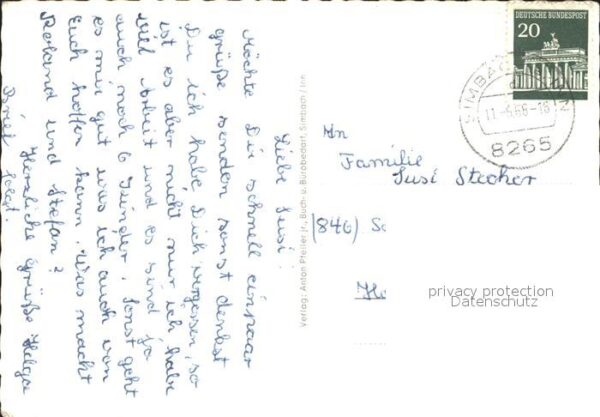 Liebe Susi!
Möchte Dir schnell ein paar
grüße senden sonst denkst
Du ich habe Dich vergessen, so
ist es aber nicht nur ich habe
viel Arbeit und es sind ja
auch noch 6 Kinder. Sonst geht
es mir gut was ich auch von
Euch hoffen kann. Was macht
Roland und Stefan?
Herzliche grüße Helga
Brief folgt.
Verlag: Anton Pfeiler jr., Buch- u. Bürobedarf, Simbach / Inn
DEUTSCHE BUNDESPOST
20
SIMBACH
11.-5.68-18
8265
An
Familie
Susi Stecher
(846) Sc
He
privacy protection
Datenschutz